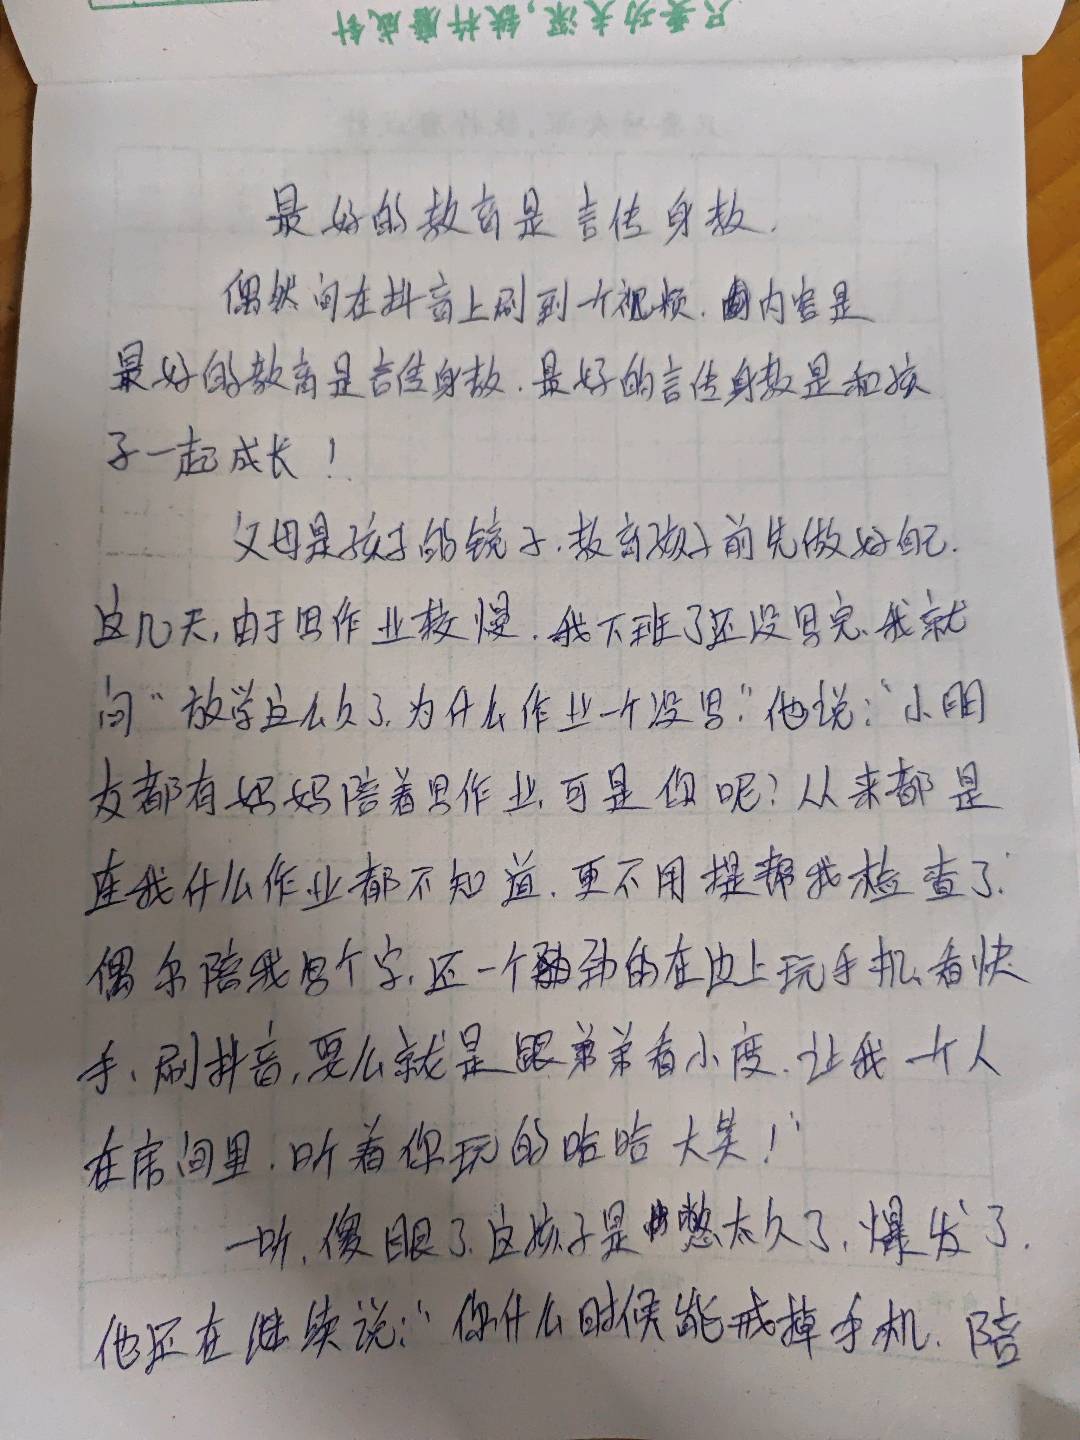 只要功夫深，铁杵磨成针
最好的教育是言传身教.
偶然间在抖音上刷到一个视频.内容是
最好的教育是言传身教.最好的言传身教是和孩
子一起成长！
父母是孩子的镜子.教育孩子前先做好自己.
这几天,由于写作业较慢.我下班了还没写完.我就
问"放学这么久了.为什么作业一个没写."他说:"小朋
友都有妈妈陪着写作业,可是你呢?从来都是
连我什么作业都不知道.更不用提帮我检查了.
偶尔陪我写个字,还一个劲的在边上玩手机、看快
手、刷抖音,要么就是跟弟弟看小度.让我一个人
在房间里.听着你玩的哈哈大笑!"
一听,傻眼了.这孩子是憋太久了,爆发了.
他还在继续说:"你什么时候能戒掉手机.陪